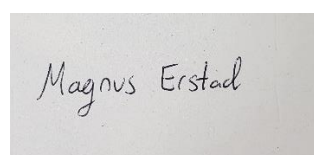 Magnus Erstad